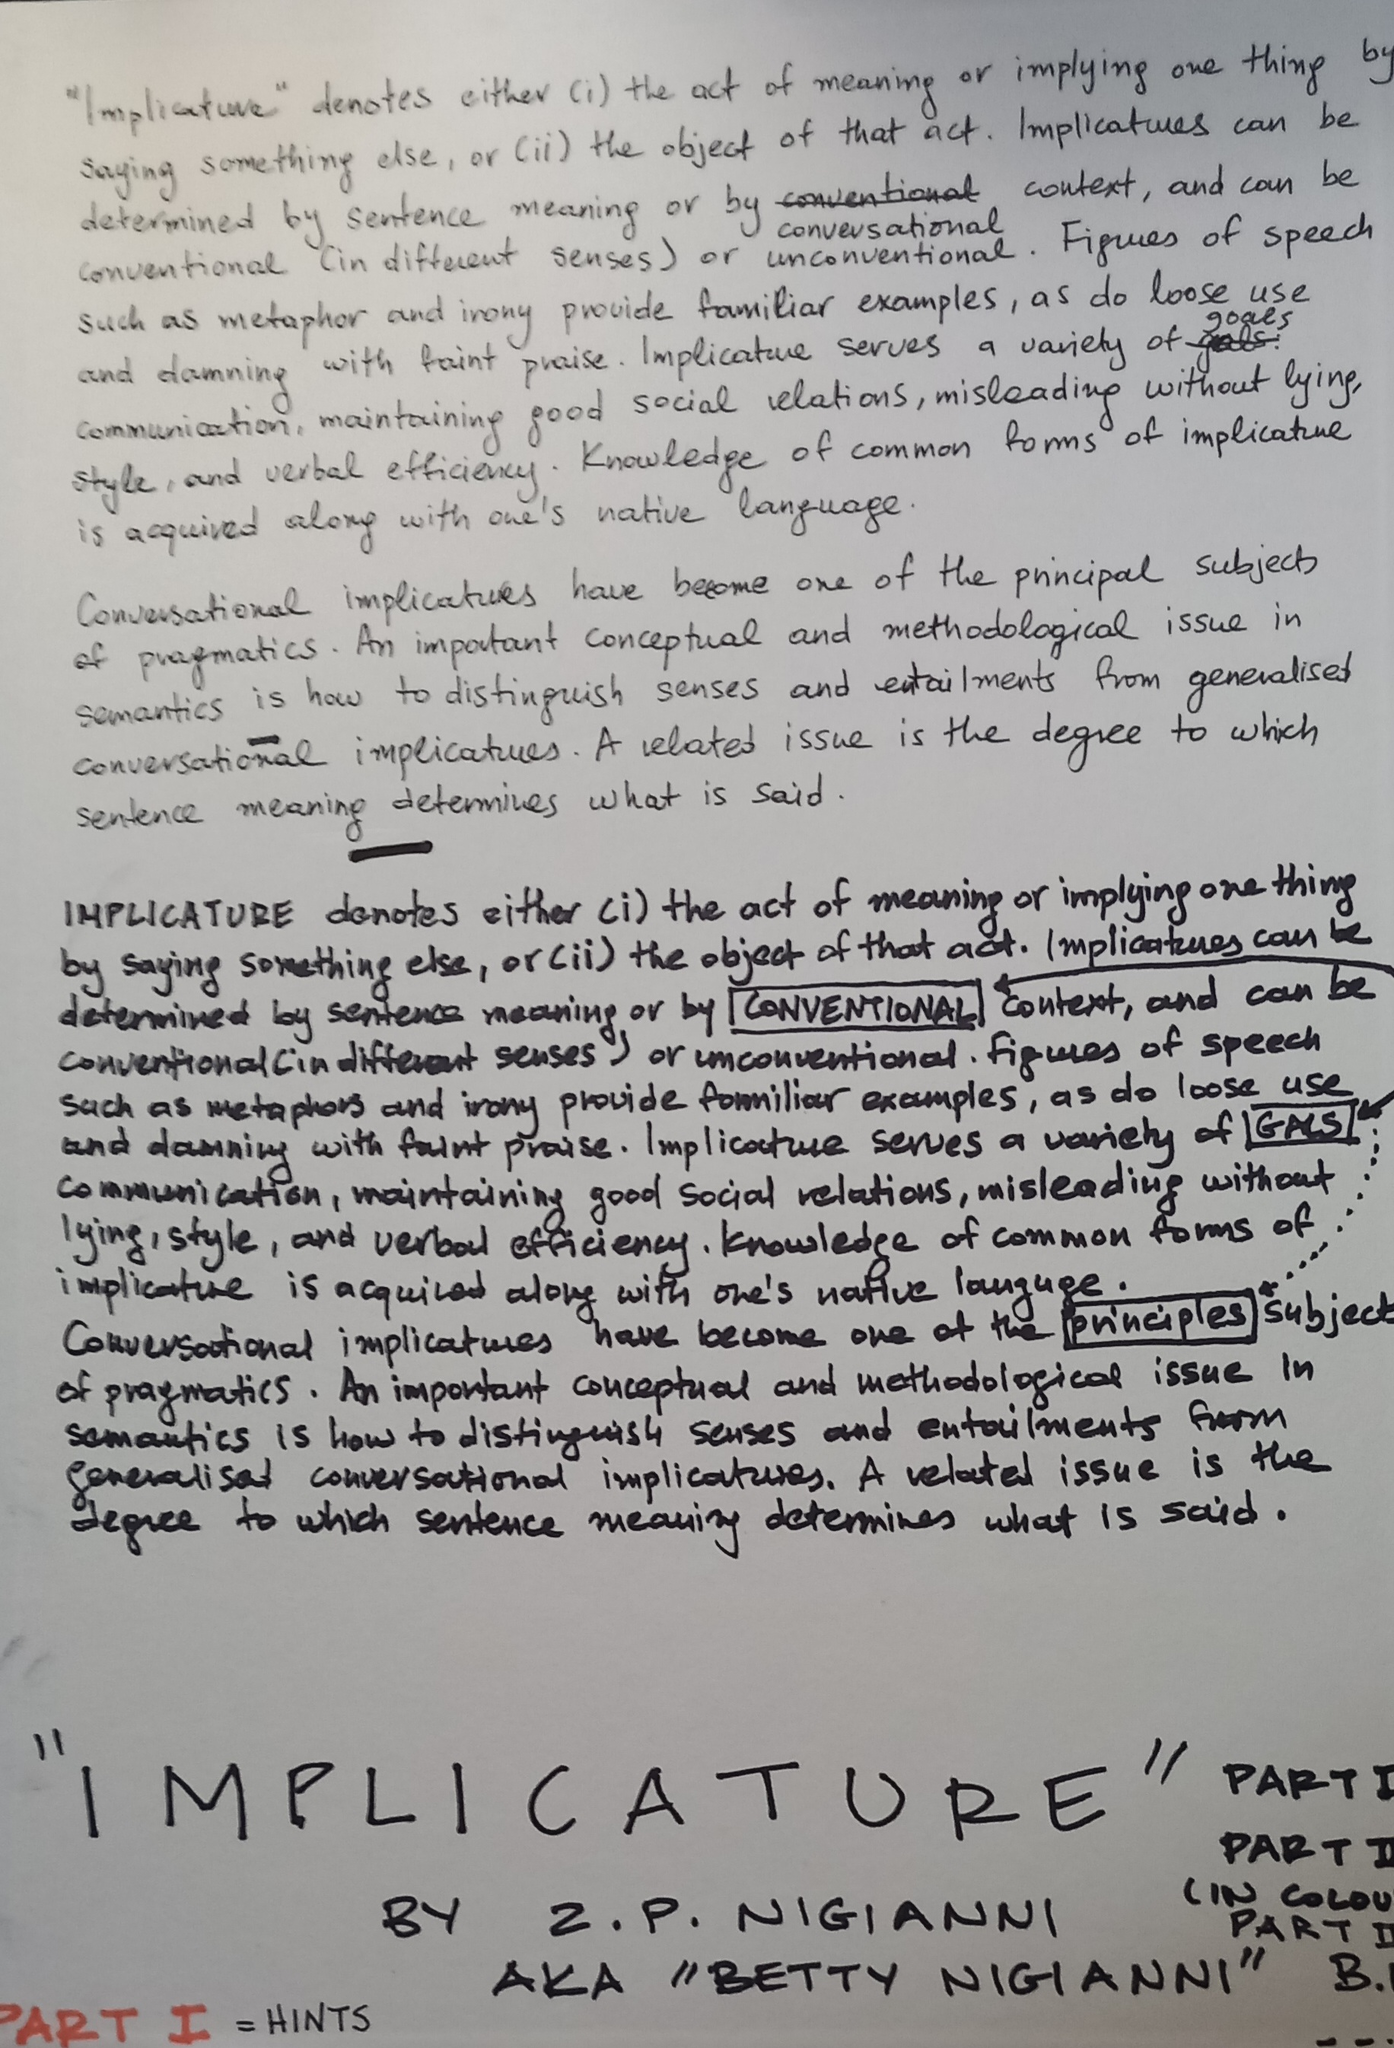 "Implicature" denotes either (i) the act of meaning or implying one thing by
saying something else, or (ii) the object of that act. Implicatures can be
determined by sentence meaning or by conventional context, and can be
conversational
conventional (in different senses) or unconventional. Figures of speech
such as metaphor and irony provide familiar examples, as do loose use
goals
and damning with faint praise. Implicature serves a variety of gals:
communication, maintaining good social relations, misleading without lying,
style, and verbal efficiency. Knowledge of common forms of implicature
is acquired along with one's native language.
Conversational implicatures have become one of the principal subjects
of pragmatics. An important conceptual and methodological issue in
semantics is how to distinguish senses and entailments from generalised
conversational implicatures. A related issue is the degree to which
sentence meaning determines what is said.
IMPLICATURE denotes either (i) the act of meaning or implying one thing
by saying something else, or (ii) the object of that act. Implicatures can be
determined by sentence meaning or by CONVENTIONAL context, and can be
conventional (in different senses) or unconventional. Figures of speech
such as metaphors and irony provide fammiliar examples, as do loose use
and damning with faint praise. Implicature serves a variety of GALS:
communication, maintaining good social relations, misleading without
lying, style, and verbal efficiency. Knowledge of common forms of
implicature is acquired along with one's native languge.
Conversational implicatures have become one of the principles subject
of pragmatics. An important conceptual and methodological issue in
semantics is how to distinguish senses and entailments from
generalised conversational implicatures. A related issue is the
degree to which sentence meaning determines what is said.
"IMPLICATURE" PART I
PART II
(IN COLOU
BY Z.P. NIGIANNI PART II
AKA "BETTY NIGIANNI" B.
PART I = HINTS